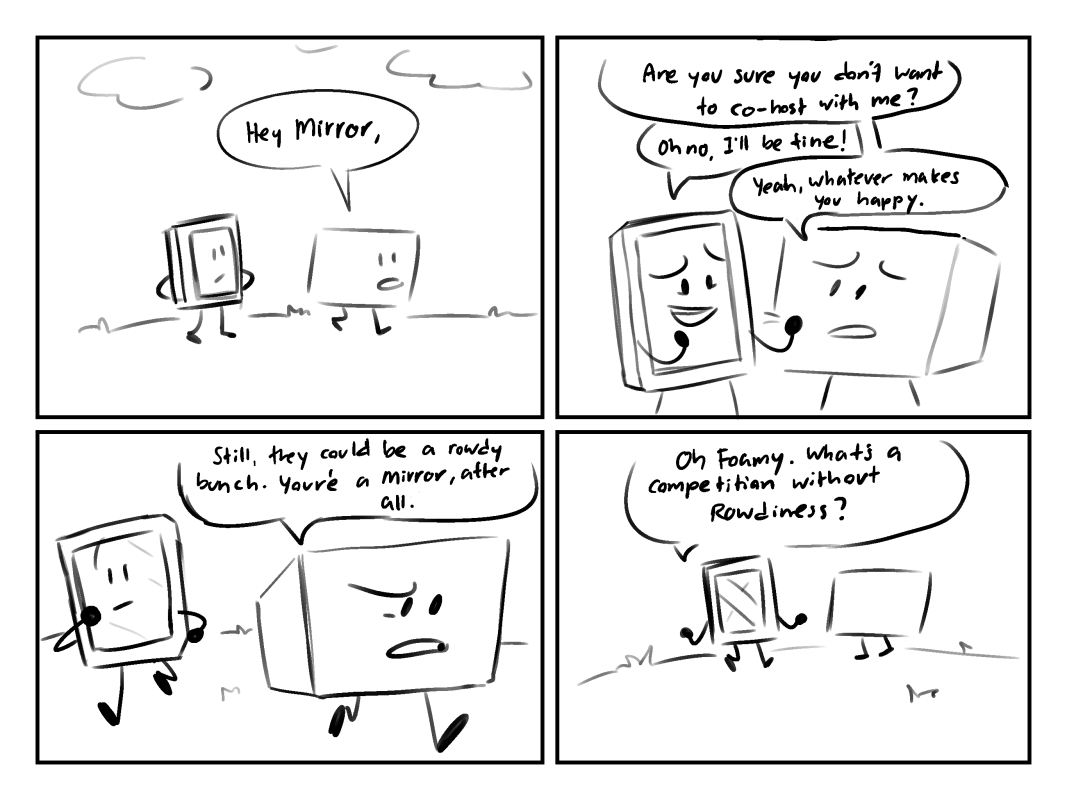 Hey Mirror,
Are you sure you don't want
to co-host with me?
Oh no, I'll be fine!
Yeah, whatever makes
you happy.
Still, they could be a rowdy
bunch. You're a mirror, after
all.
Oh Foamy. What's a
competition without
Rowdiness?